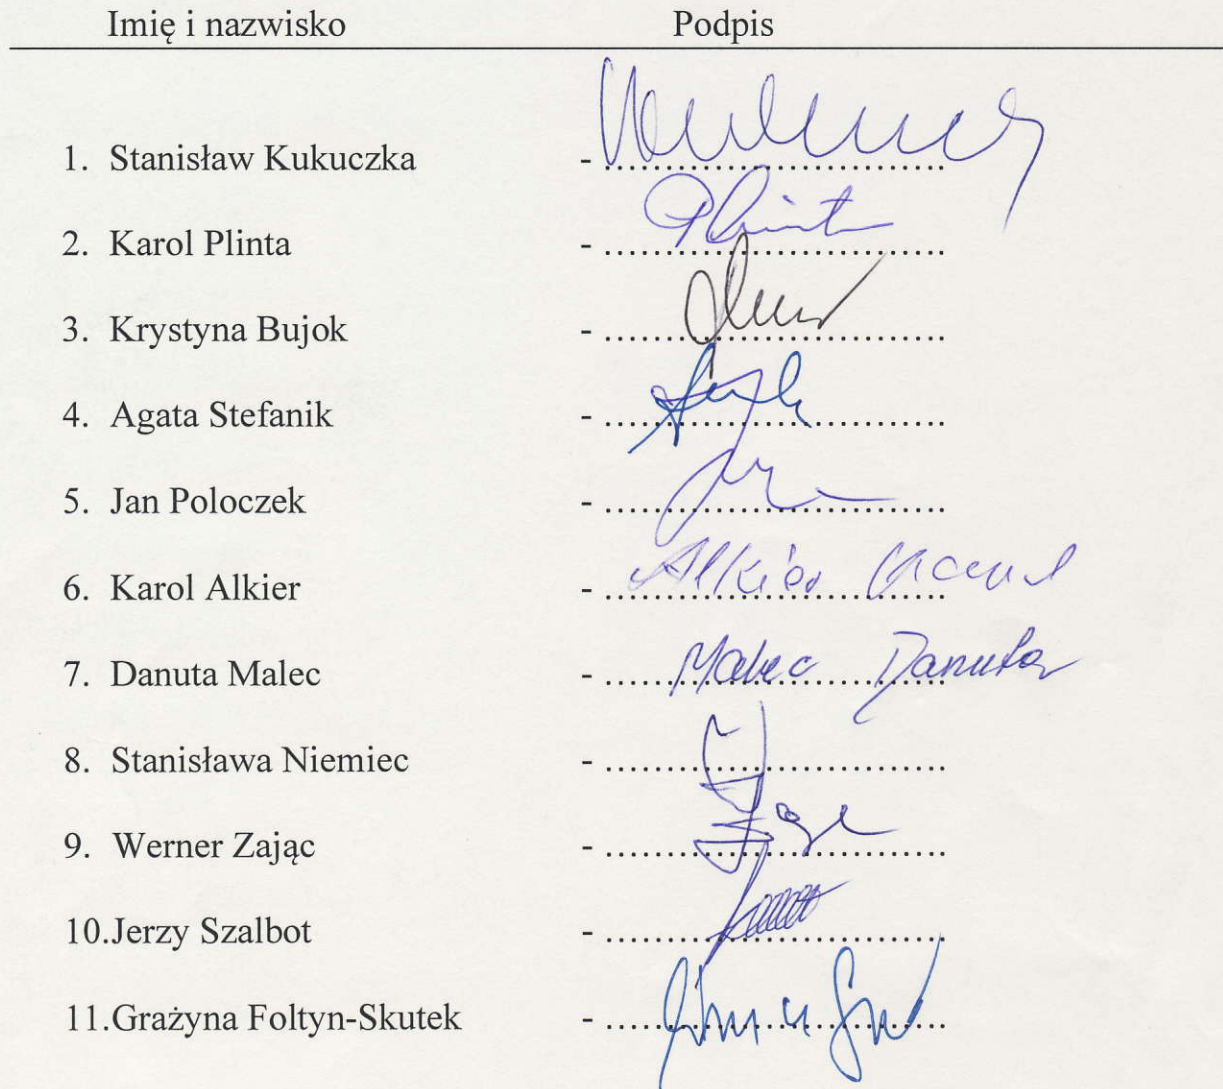 Imię i nazwisko Podpis
1. Stanisław Kukuczka - ..............................
2. Karol Plinta - .............................. Plinta
3. Krystyna Bujok - ..............................
4. Agata Stefanik - ..............................
5. Jan Poloczek - ..............................
6. Karol Alkier - .............................. Alkier Karol
7. Danuta Malec - .............................. Malec Danuta
8. Stanisława Niemiec - ..............................
9. Werner Zając - ..............................
10.Jerzy Szalbot - ..............................
11.Grażyna Foltyn-Skutek - ..............................